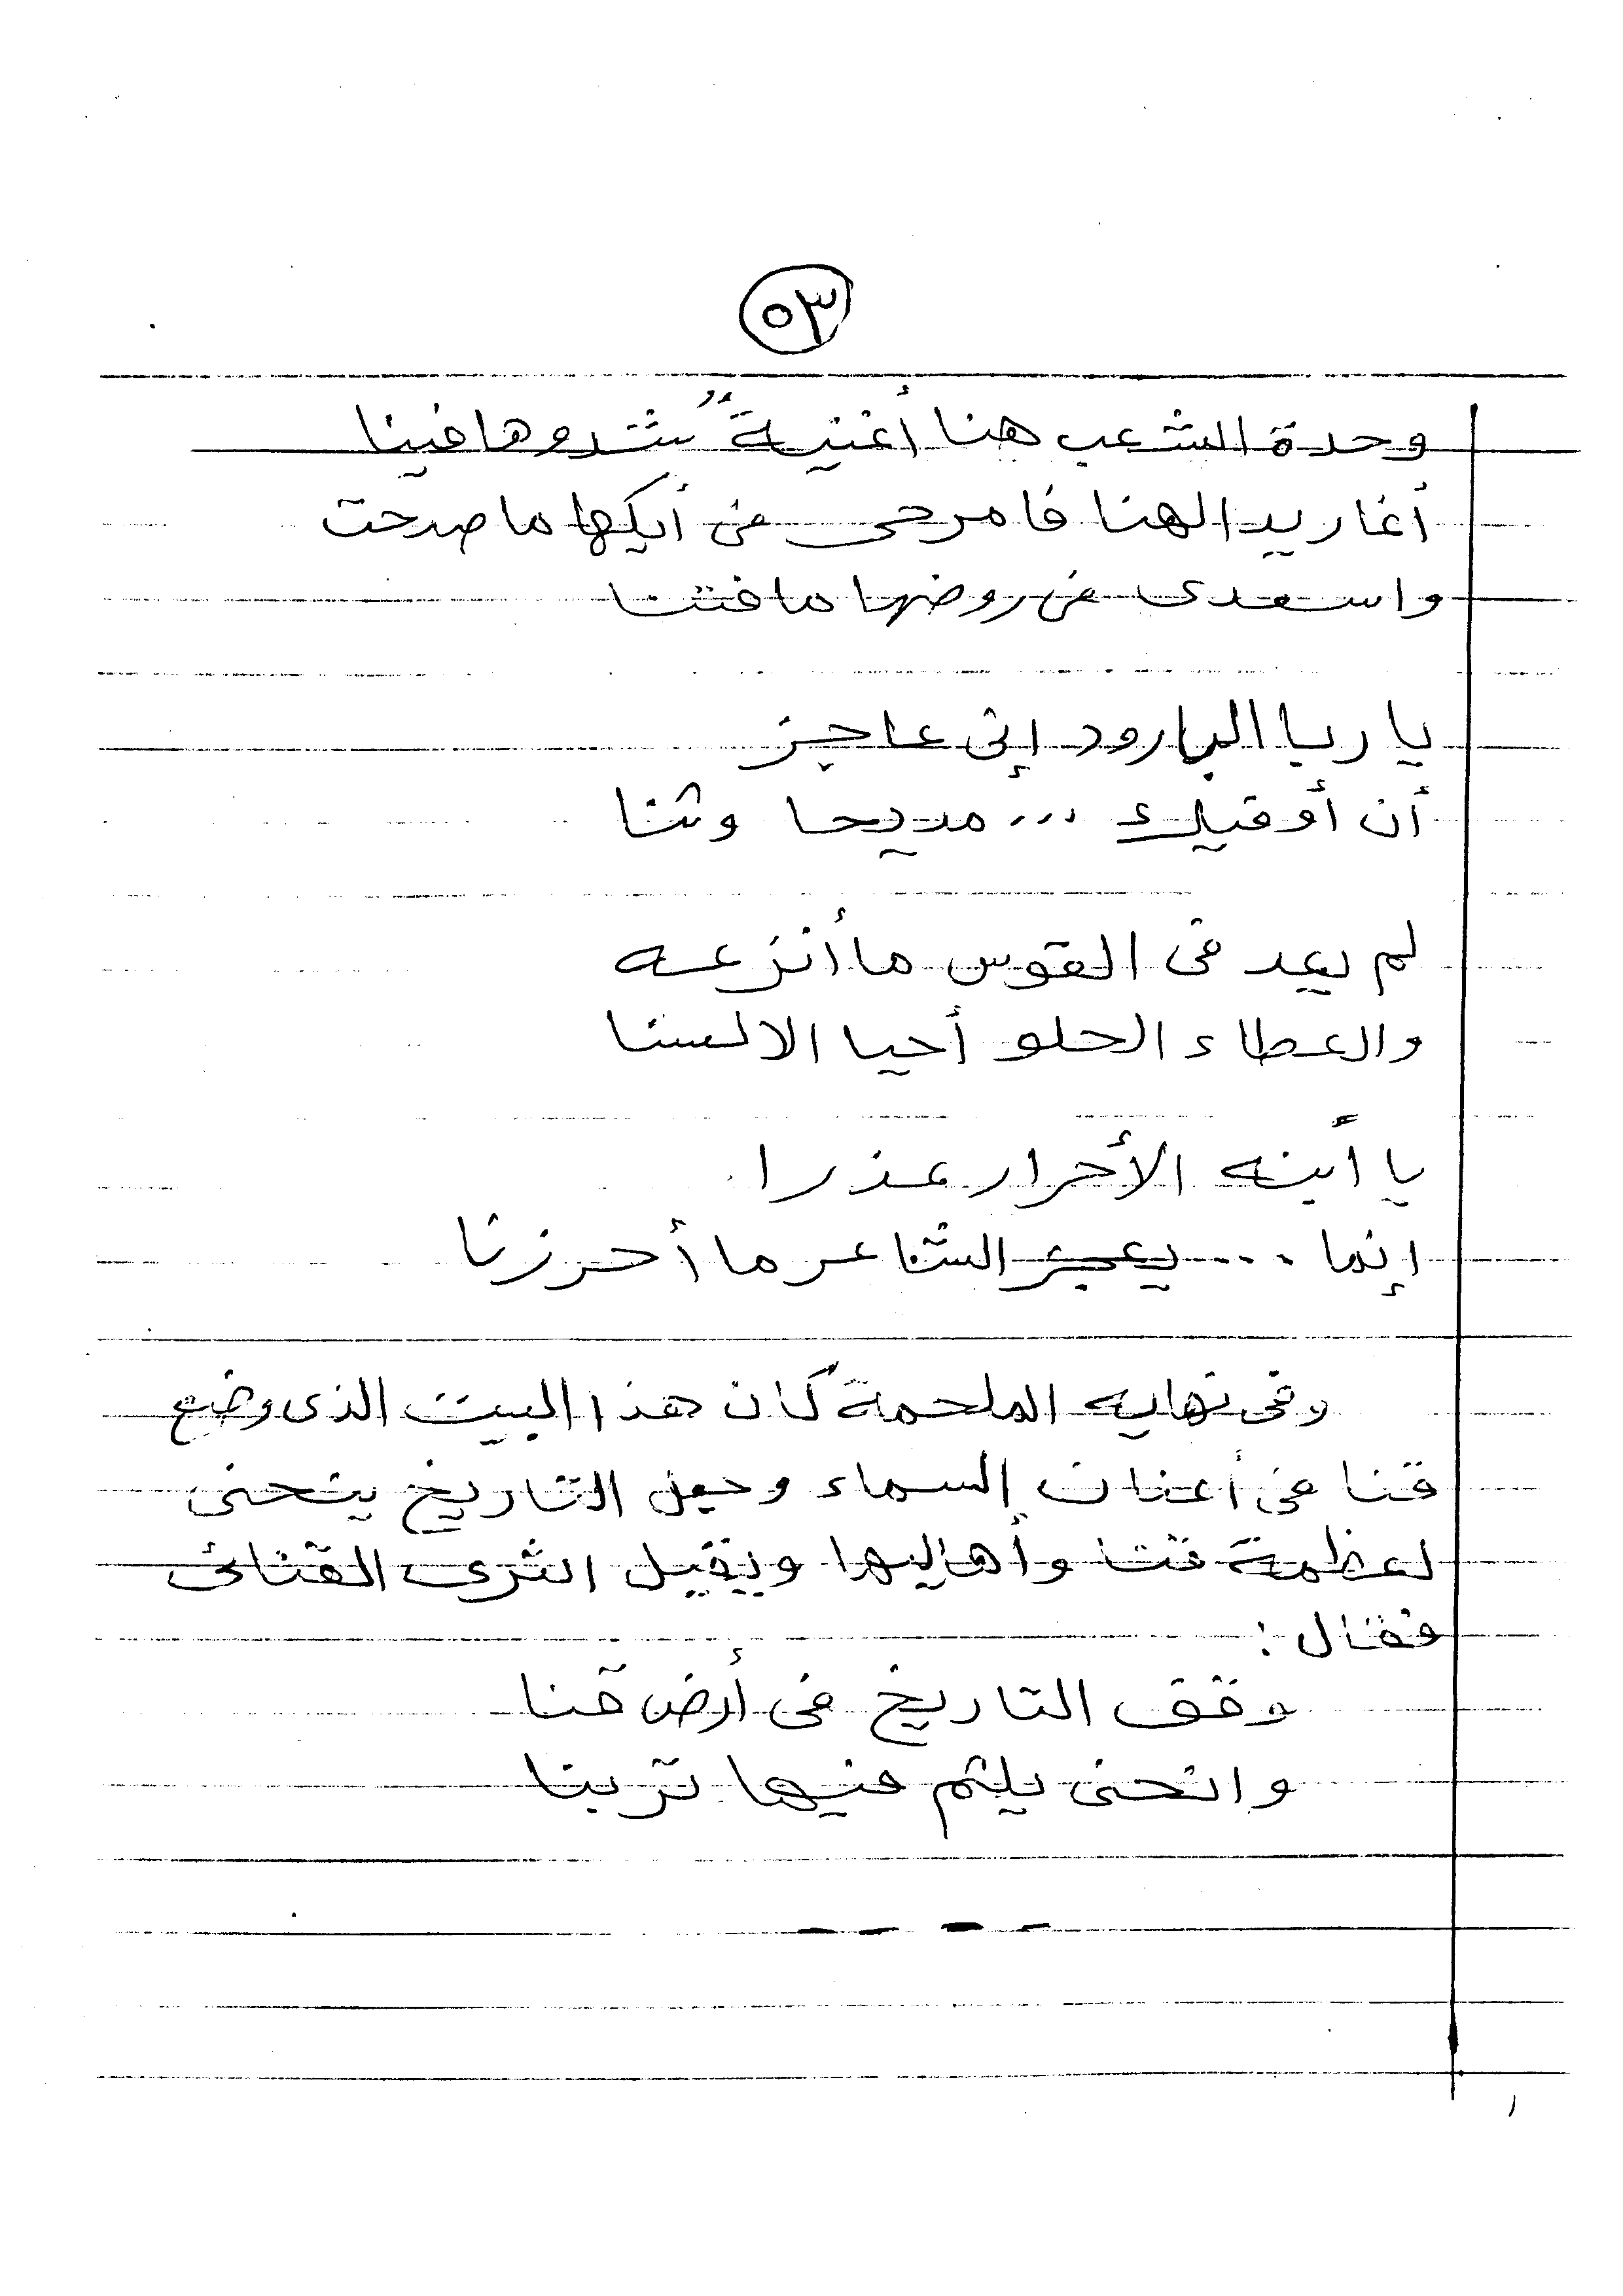 ٥٣
وحدة الشعب هنا أغنيةٌ شدوها فينا
أغاريد الهنا فامرحى فى أيكها ما صدحت
واسعدى فى روضها ما فتنا
يا ربا البارود إنى عاجز
أن أوفيك ... مديحا وثنا
لم يعد فى القوس ما أنزعه
والعطاء الحلو أحيا الالسنا
يا أبنه الأحرار عذرا
إنما ... يعجز الشاعر ما أحرزنا
وفى نهايه الملحمة كان هذا البيت الذى وضع
قنا فى أعنان السماء وجعل التاريخ ينحنى
لعظمة قنا وأهاليها ويقبل الثرى القنائى
فقال :
وقف التاريخ فى أرض قنا
وانحنى يلثم فيها تربنا